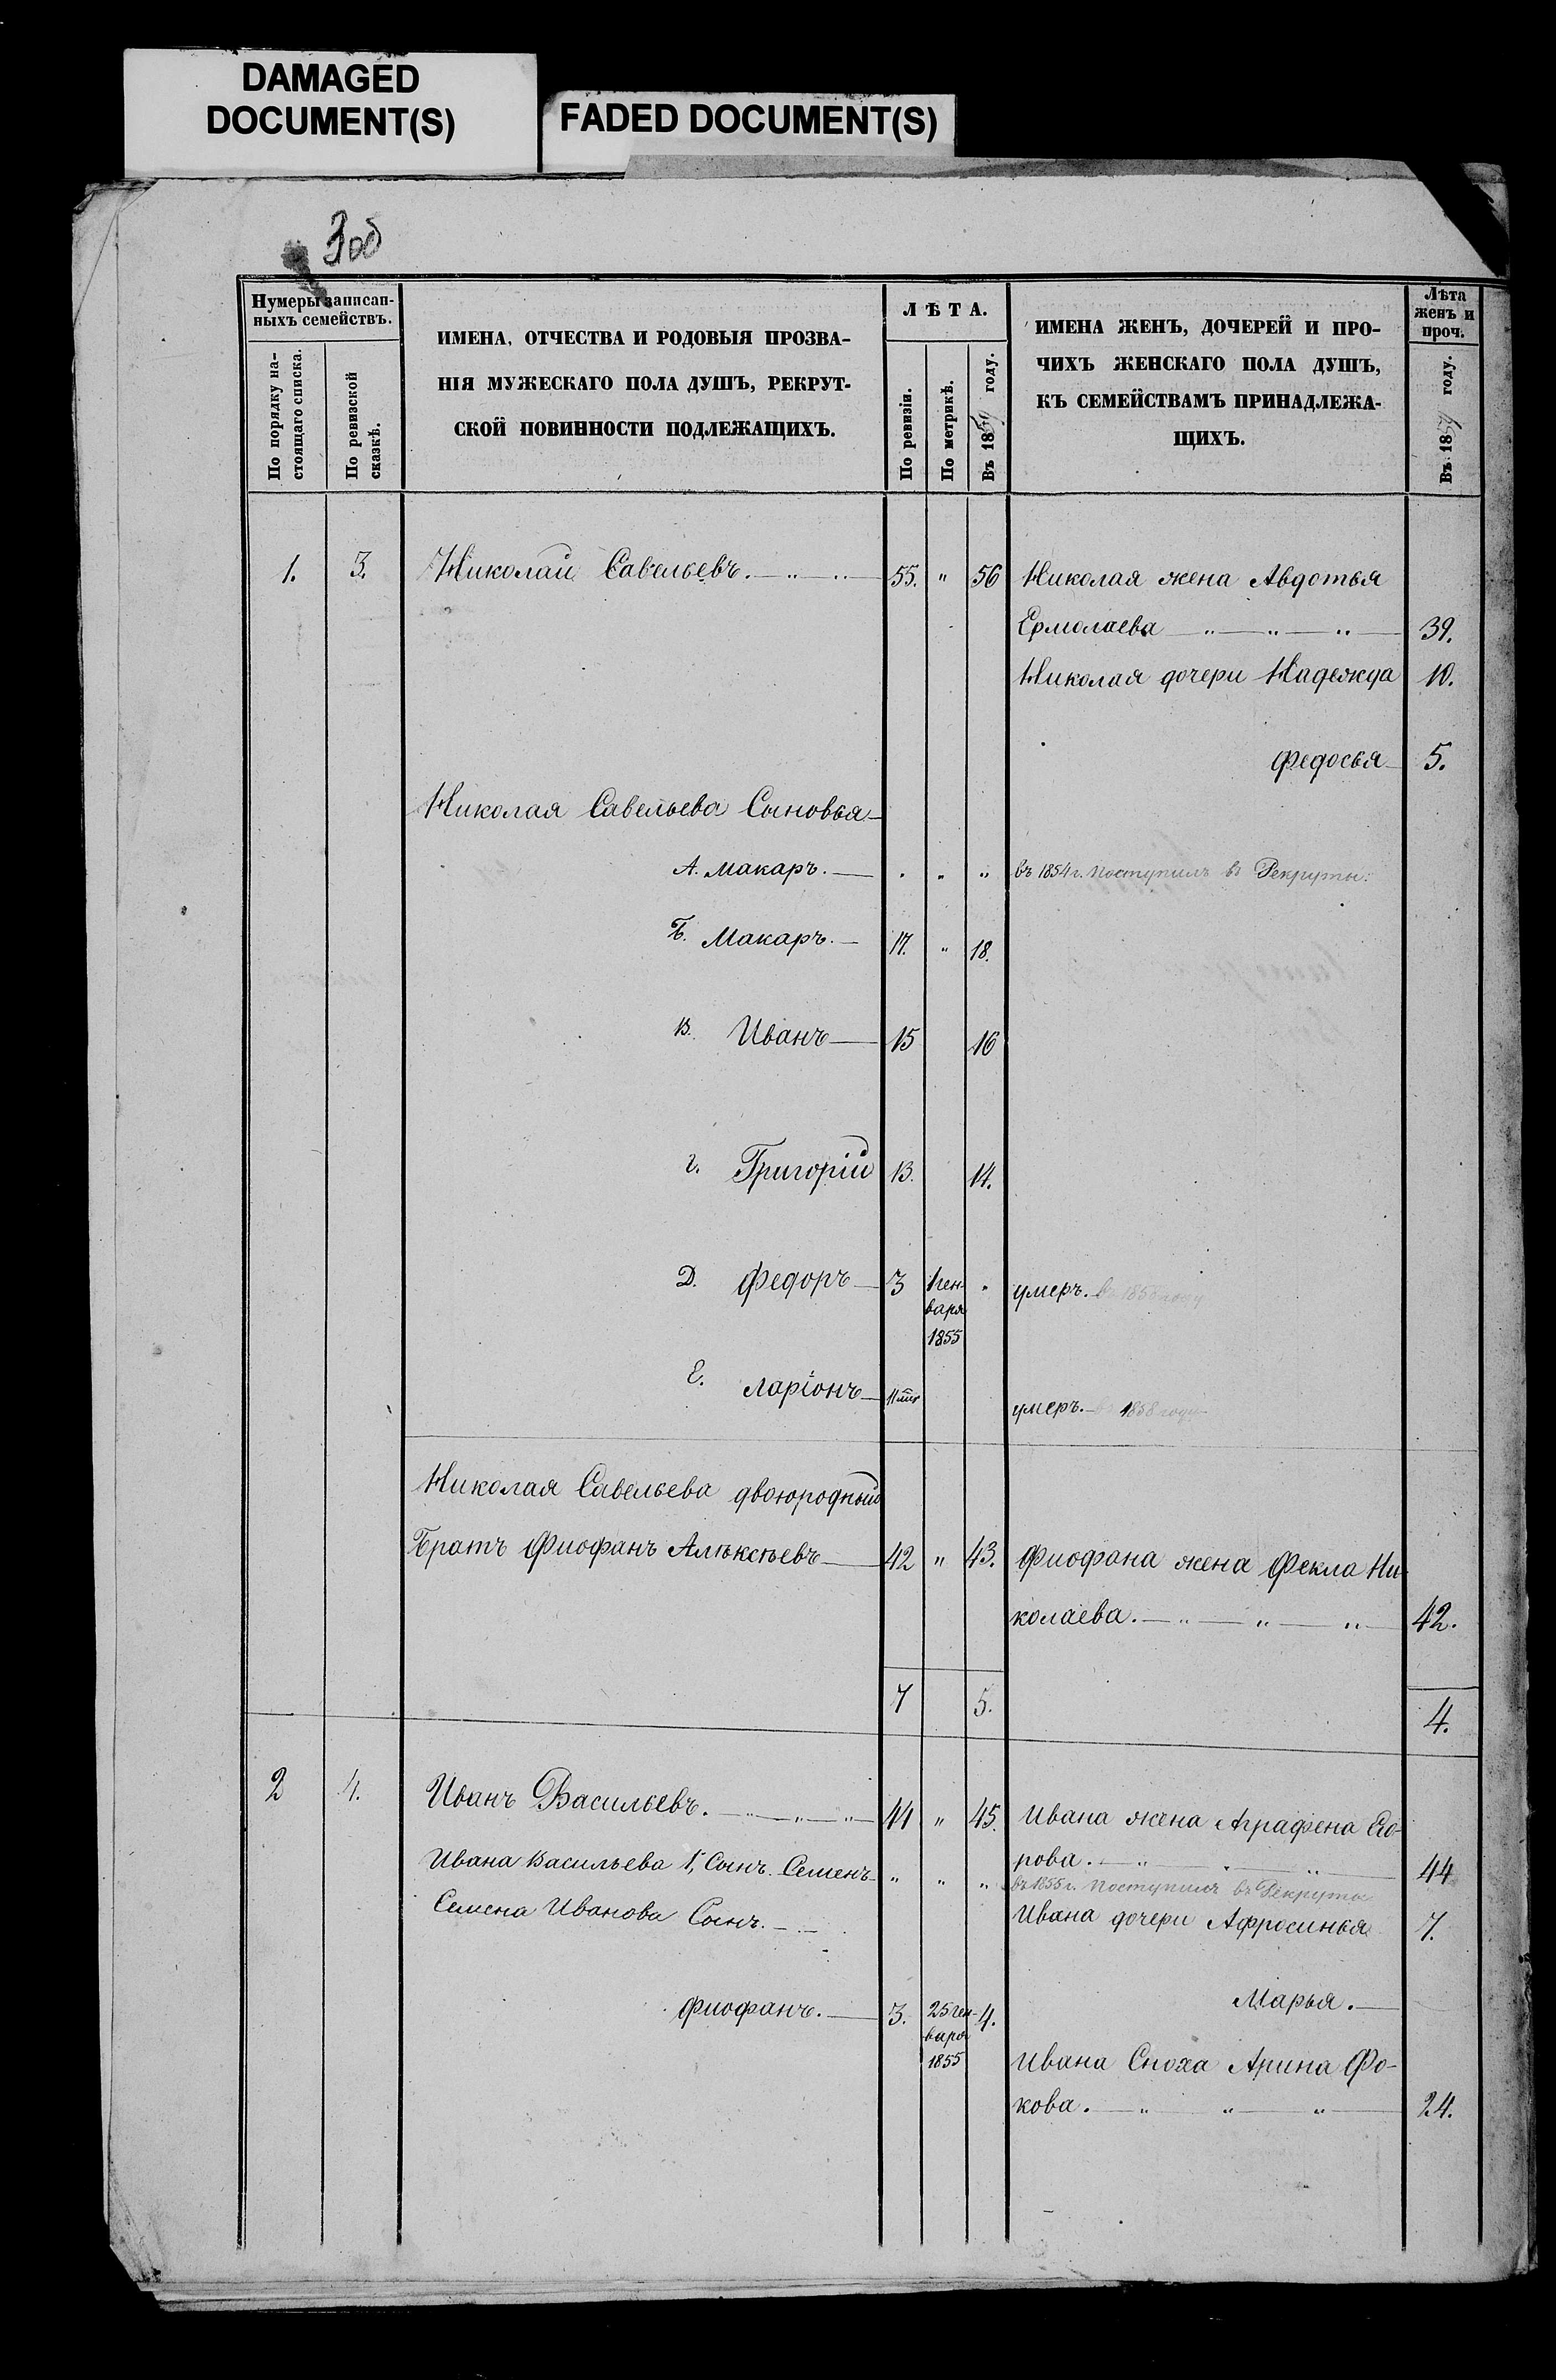 DAMAGED
DOCUMENT(S)
FADED DOCUMENT(S)
3об
Нумеры записан-
ныхъ семействъ.
По порядку на-
стоящаго списка.
По ревизской
сказкѣ.
ИМЕНА, ОТЧЕСТВА И РОДОВЫЯ ПРОЗВА-
НІЯ МУЖЕСКАГО ПОЛА ДУШЪ, РЕКРУТ-
СКОЙ ПОВИННОСТИ ПОДЛЕЖАЩИХЪ.
ЛѢТА.
По ревизіи.
По метрикѣ.
Въ 1859 году.
ИМЕНА ЖЕНЪ, ДОЧЕРЕЙ И ПРО-
ЧИХЪ ЖЕНСКАГО ПОЛА ДУШЪ,
КЪ СЕМЕЙСТВАМЪ ПРИНАДЛЕЖА-
ЩИХЪ.
Лѣта
женъ и
проч.
Въ 1859 году.
1. 3. Николай Савельевъ. — " — " — 55. " 56 Николая жена Авдотья
Ермолаева — " — " — " — 39.
Николая дочери Надежда 10.
Федосья — 5.
Николая Савельева Сыновья —
А. Макаръ. — " " " въ 1854 г. поступилъ въ Рекруты.
Б. Макаръ. — 17. " 18.
В. Иванъ — 15 16
Г. Григорій 13. 14.
Д. Федоръ — 3 1 ген- " умеръ. въ 1858 году
варя
1855
Е. Ларіонъ — 11 мⷭ умеръ. въ 1858 году
Николая Савельева двоюродный
Братъ Фиофанъ Алѣксѣевъ — 42 " 43. Фиофана жена Фекла Ни-
колаева. — " — " — " — 42.
7 5. 4.
2 4. Иванъ Васильевъ. — " — " — " — 44 " 45. Ивана жена Аграфена Его-
рова. — " — " — 44
Ивана Васильева 1, Сынъ Семенъ — " " " въ 1855 г. поступилъ въ Рекруты
Семена Иванова Сынъ. — Ивана дочери Афросинья 7.
Марья. —
Фиофанъ. — 3. 25 ген- 4.
варя
1855
Ивана Сноха Арина Фо-
кова. — " — " — " — 24.